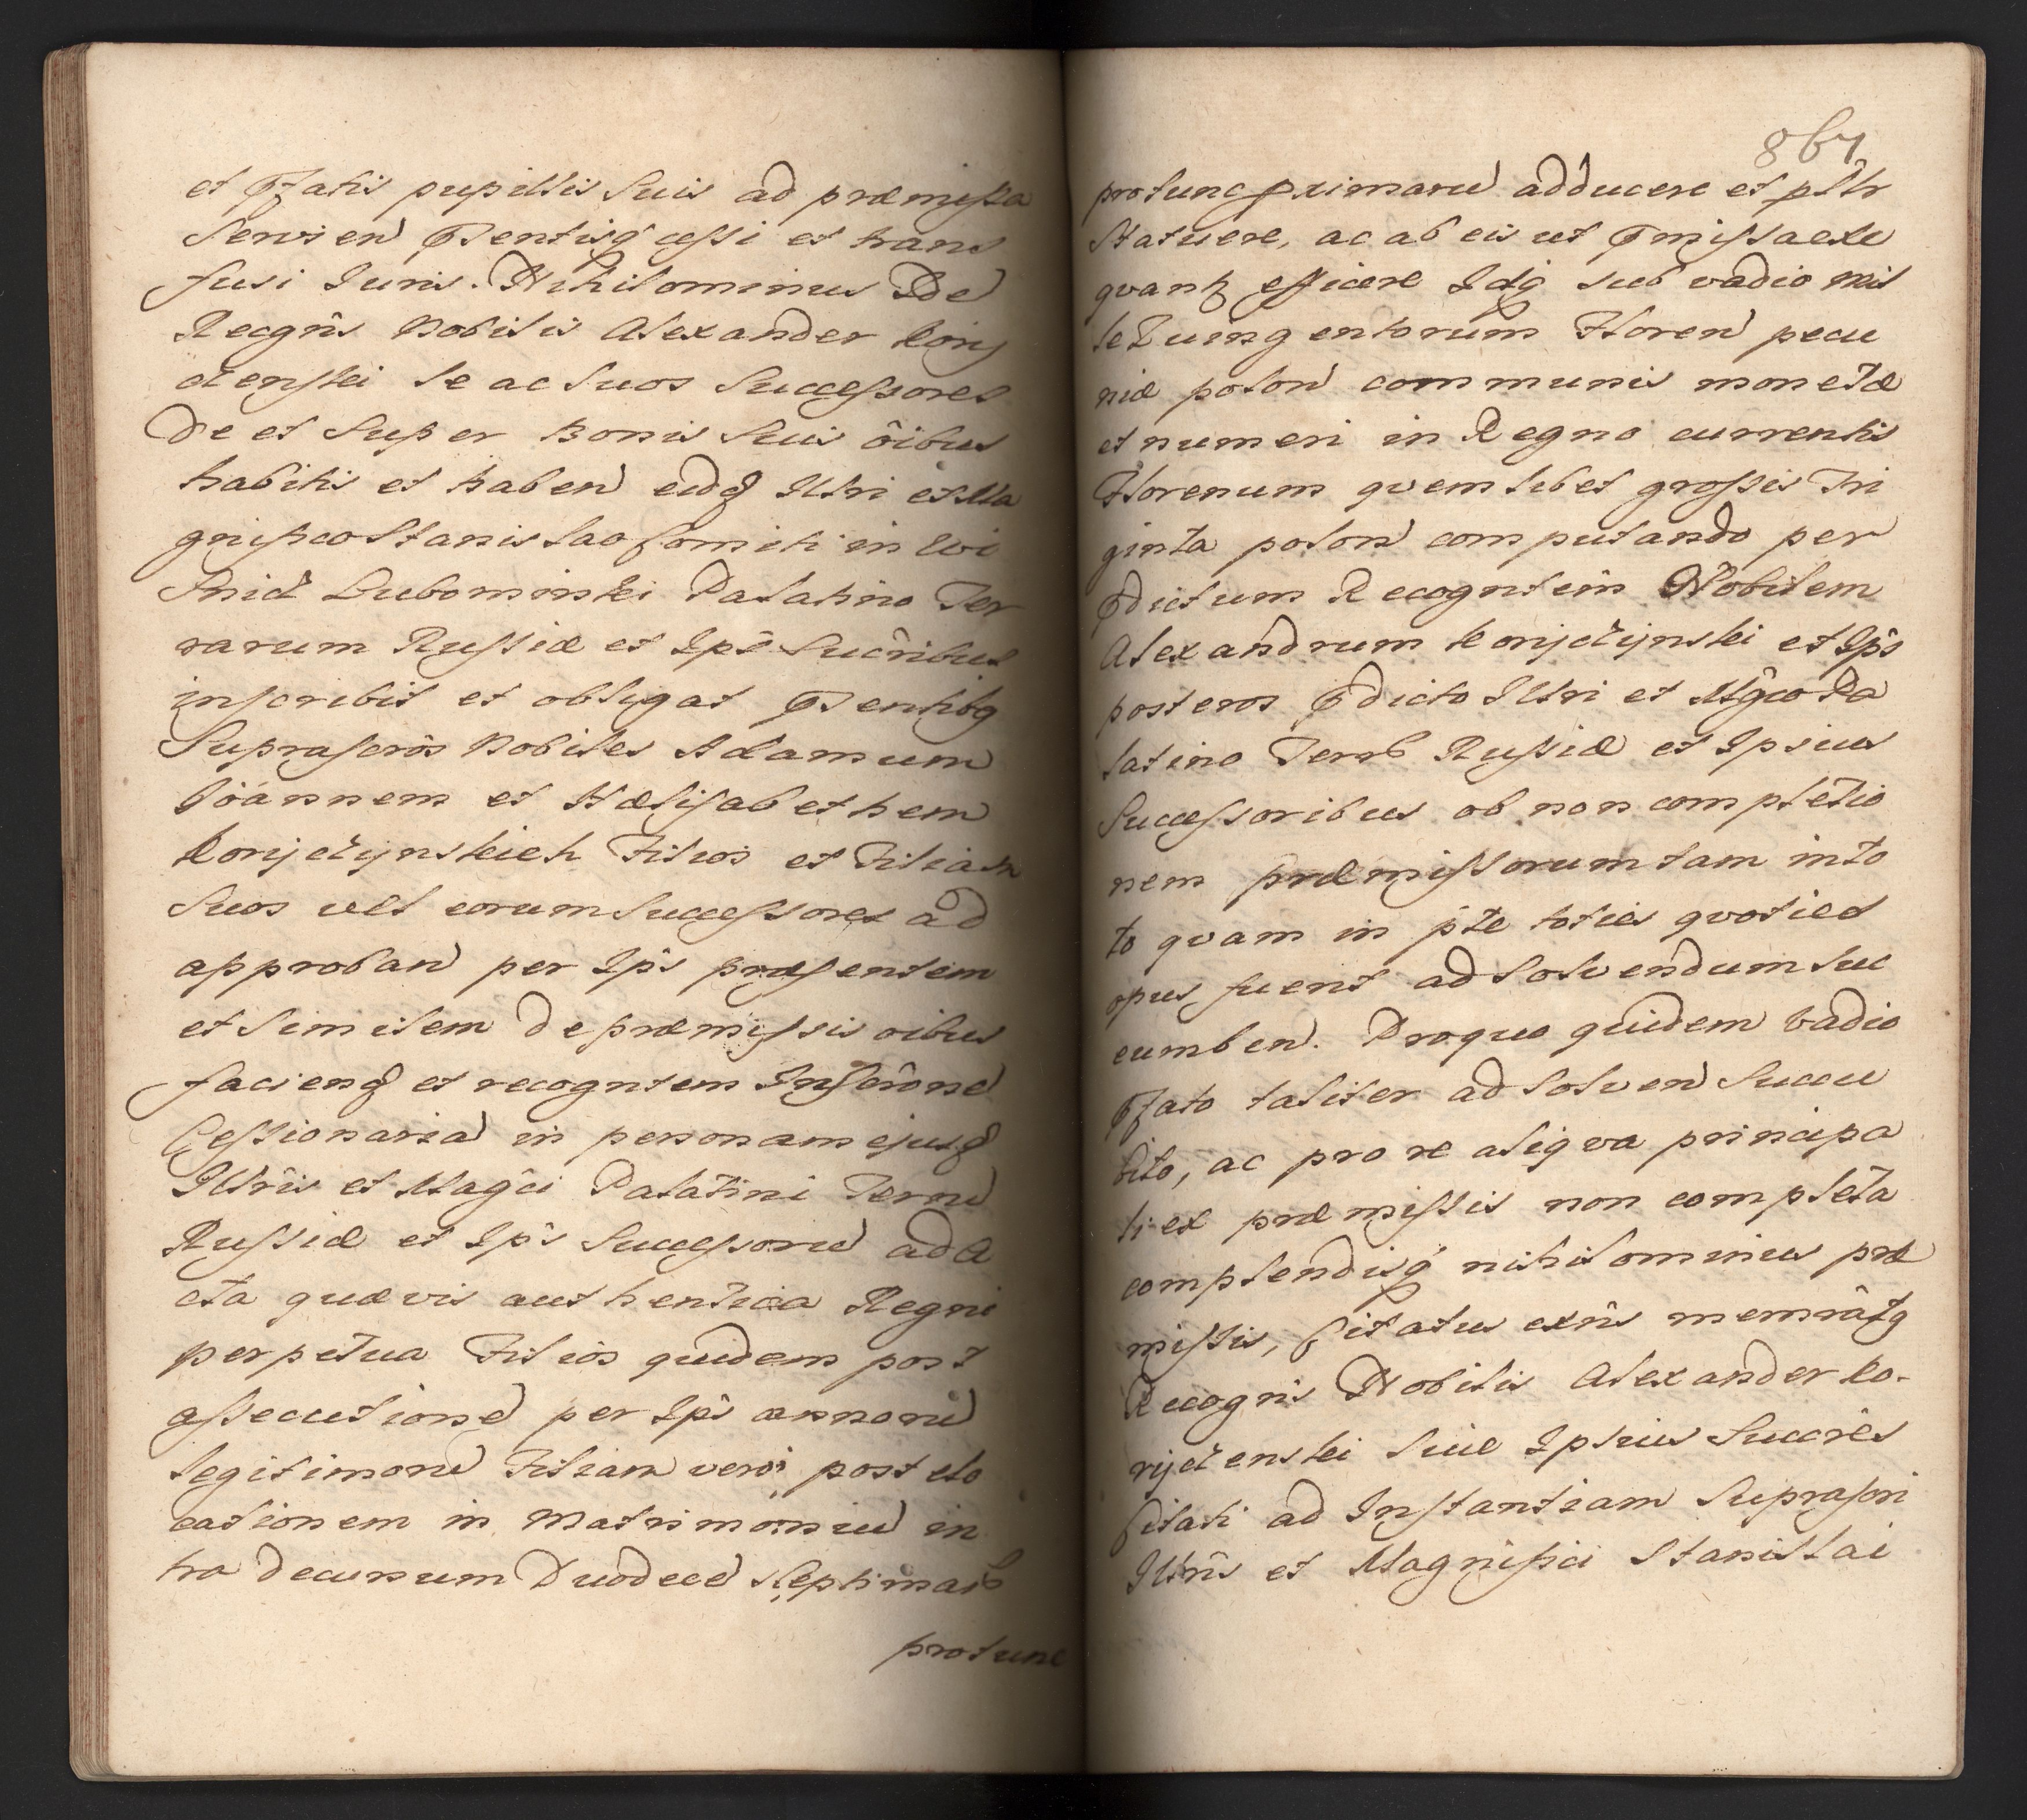 et pfatis pupillis Suis ad præmissa
Servien pntiusq cessi et trans
fusi Iuris. Nihilominus Ide
Recogns Nobilis Alexander Kory
cienski se ac Suos Successores
De et Super Bonis Suis oibus
habitis et haben eidq Illri et Ma
gnifico Stanislao Comiti in Wi
Snicz Lubomirski Palatino Ter
rarum Russiæ et Ips Sucribus
inscribit et obligat pntibq
Suprascros Nobiles Adamum
Joannem et Hælisabethem
Korijcijnskich Filios et Filiam
Suos vel eorum Successores ad
approban per Ips præsentem
et Similem De præmissis oibus
faciend et recogntem Inscrone
Cessionaria in personam ejusd
Illris et Magci Palatini Terru
Russiæ et Ips Successoru ad A
cta quævis authentica Regni
perpetua Filios quidem post
assecutione per Ips annoru
legitimoru Filiam vero post elo
cationem in Matrimoniu in
tra Decursum Duodece Septimab
protunc
867
protunc pximaru adducere et psltr
Statuere, ac ab eis ut pmissa exe
quantr efficere Idq sub vadio Mil
le Quingentorum Floren pecu
niæ polon communis monetæ
et numeri in Regno currentis
Florenum quemlibet grossis Tri
ginta polon computando per
pdictum Recogntem Nobilem
Alexandrum Korijcijnski et Ips
posteros pdicto Illri et Mgco Pa
latino Terrar Russiæ et Ipsius
Successoribus ob non completio
nem præmissorum tam in to
to quam in pte toties quoties
opus fuerit ad Solvendum Suc
cumben. Pro quo quidem Vadio
pfato taliter ad Solven Succu
bito, ac pro re aliqva principa
li ex præmissis non completa
complendisq nihilominus præ
missis, Citatus exns memratq
Recogns Nobilis Alexander Ko-
rijcienski Sive Ipsius Sucres
Citati ad Instantiam Suprascri
Illris et Magnifici Stanislai